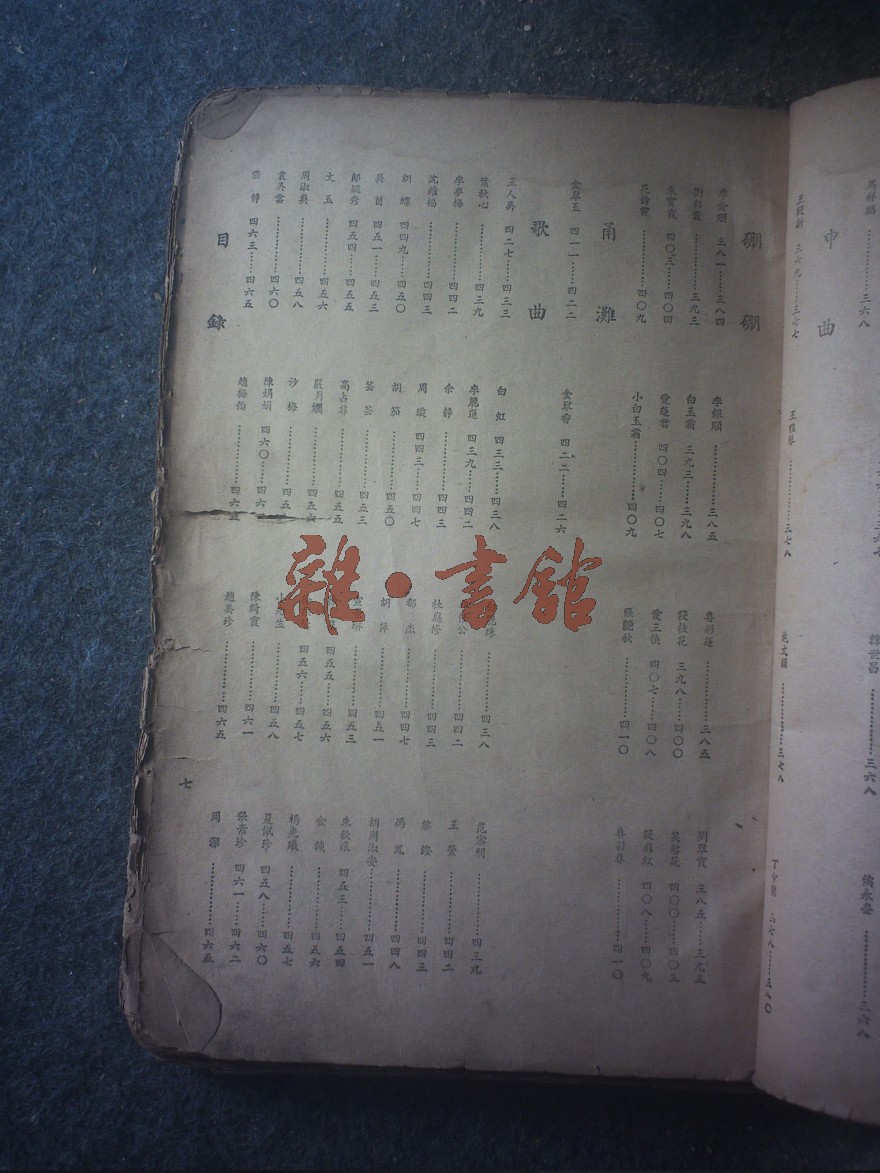 申曲
三六八
三六九……三七七
三七八
三七八
三七八……三八〇
韓世昌……三六八
侯永奎……三六八
硼硼
李金順 三八一……三八四
李銀順……三八五
三八五
劉翠霞 三八五……三九三
劉彩霞……三九三
白玉霜 三九三……三九八
筱桂花 三九八……四〇〇
芙蓉花 四〇〇……四〇三
朱寶霞 四〇三……四〇四
愛蓮君 四〇四……四〇七
愛三俠 四〇七……四〇八
筱麻紅 四〇八……四〇九
花鈴霞……四〇九
小白玉霜……四〇九
張艷秋……四一〇
四一〇
甬灘
金翠玉 四一一……四二二
金翠香 四二二……四二六
歌曲
王人美 四二七……四三三
白虹 四三三……四三八
珠……四三八
四三九
葉秋心……四三九
李麗蓮 四三九……四四二
公……四四二
王瑩……四四二
李夢梅……四四二
余靜……四四三
杜庭修……四四三
黎鏗……四四三
沈維楊……四四三
周璇 四四三……四四七
郁杰……四四七
馮鳳……四四八
胡蝶 四四九……四五〇
胡笳……四五〇
胡萍……四五一
胡周淑安……四五一
吳茵 四五一……四五三
芸芸……四五三
琳……四五三
朱秋痕 四五三……四五四
郎毓秀 四五四……四五五
高占非……四五五
四五五……四五六
四五六
文玉……四五六
嚴月嫻……四五六
四五六……四五七
楊光曦……四五七
周淑英……四五八
沙梅……四五
生……四五八
夏佩珍 四五八……四六〇
袁美雲……四六〇
陳娟娟 四六〇……四六
陳綺霞……四六一
張素珍 四六一……四六二
張靜 四六三……四六五
趙梅伯……四六五
趙美珍……四六五
周潔……四六五
目錄
七
雜·書館